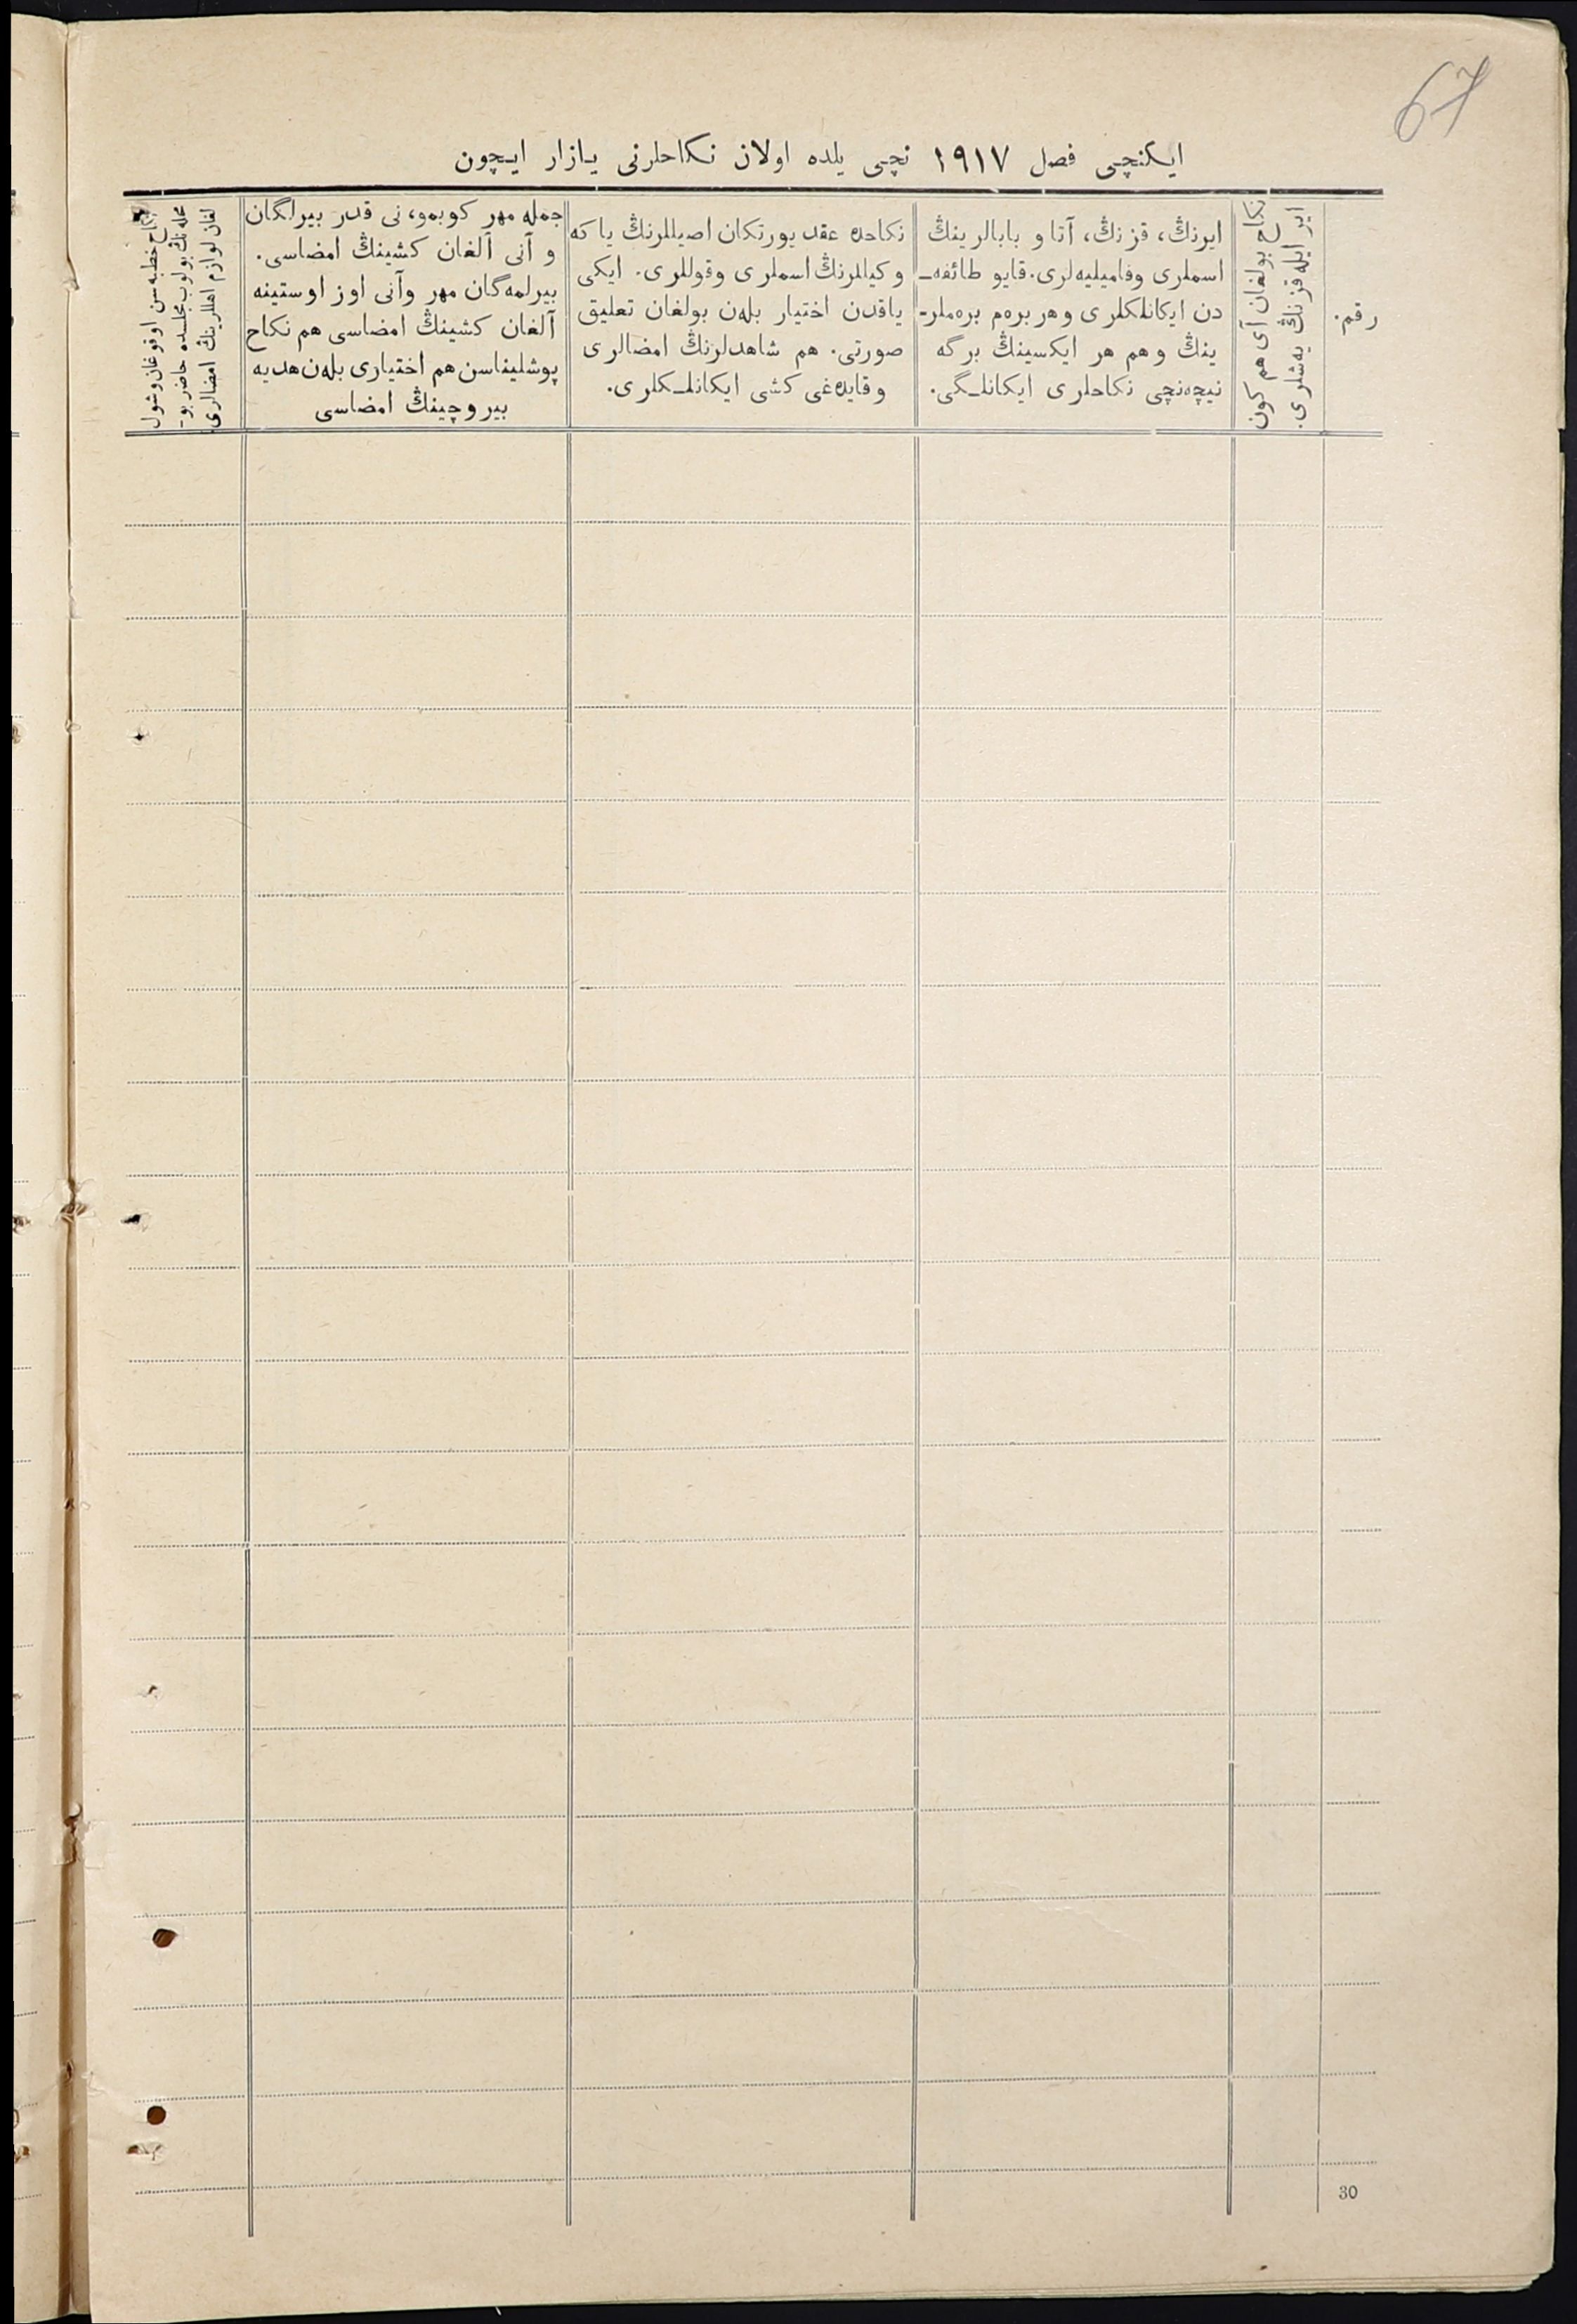 67
ایکنچی فصل ١٩١٧ نچی یلده اولان نکاحلرنی یازار ایچون
رقم.
ایر ایله قزنڭ یەشلری.
نکاح بولغان آی هم کون
ایرنڭ، قزنڭ، آتا و بابالرینڭ
اسملری وفامیلیەلری. قایو طائفه‌ـ
دن ایکانلکلری وهر برەم برەملرـ
ینڭ وهم هر ایکسینڭ برگه
نیچەنچی نکاحلری ایکانلـگی.
نکاحده عقد یورتکان اصیللرنڭ یا که
وکیللرنڭ اسملری وقوللری. ایکی
یاقدن اختیار بلەن بولغان تعلیق
صورتی. هم شاهدلرنڭ امضالری
وقایدەغی کشی ایکانلـکلری.
جمله مهر کوبمو، نی قدر بیرلگان
و آنی آلغان کشینڭ امضاسی.
بیرلمەگان مهر وآنی اوز اوستینه
آلغان کشینڭ امضاسی هم نکاح
پوشلیناسن هم اختیاری بلەن هدیه
بیروچینڭ امضاسی
نکاح خطبەسن اوقوغان وشول
محلەنڭ بولوب مجلسده حاضر بوـ
لغان لوازم اهللرینڭ امضالری.
30